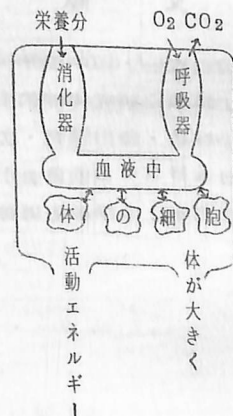 栄養分
O₂ CO₂
消化器
呼吸器
血液中
体の細胞
活動エネルギー
体が大きく